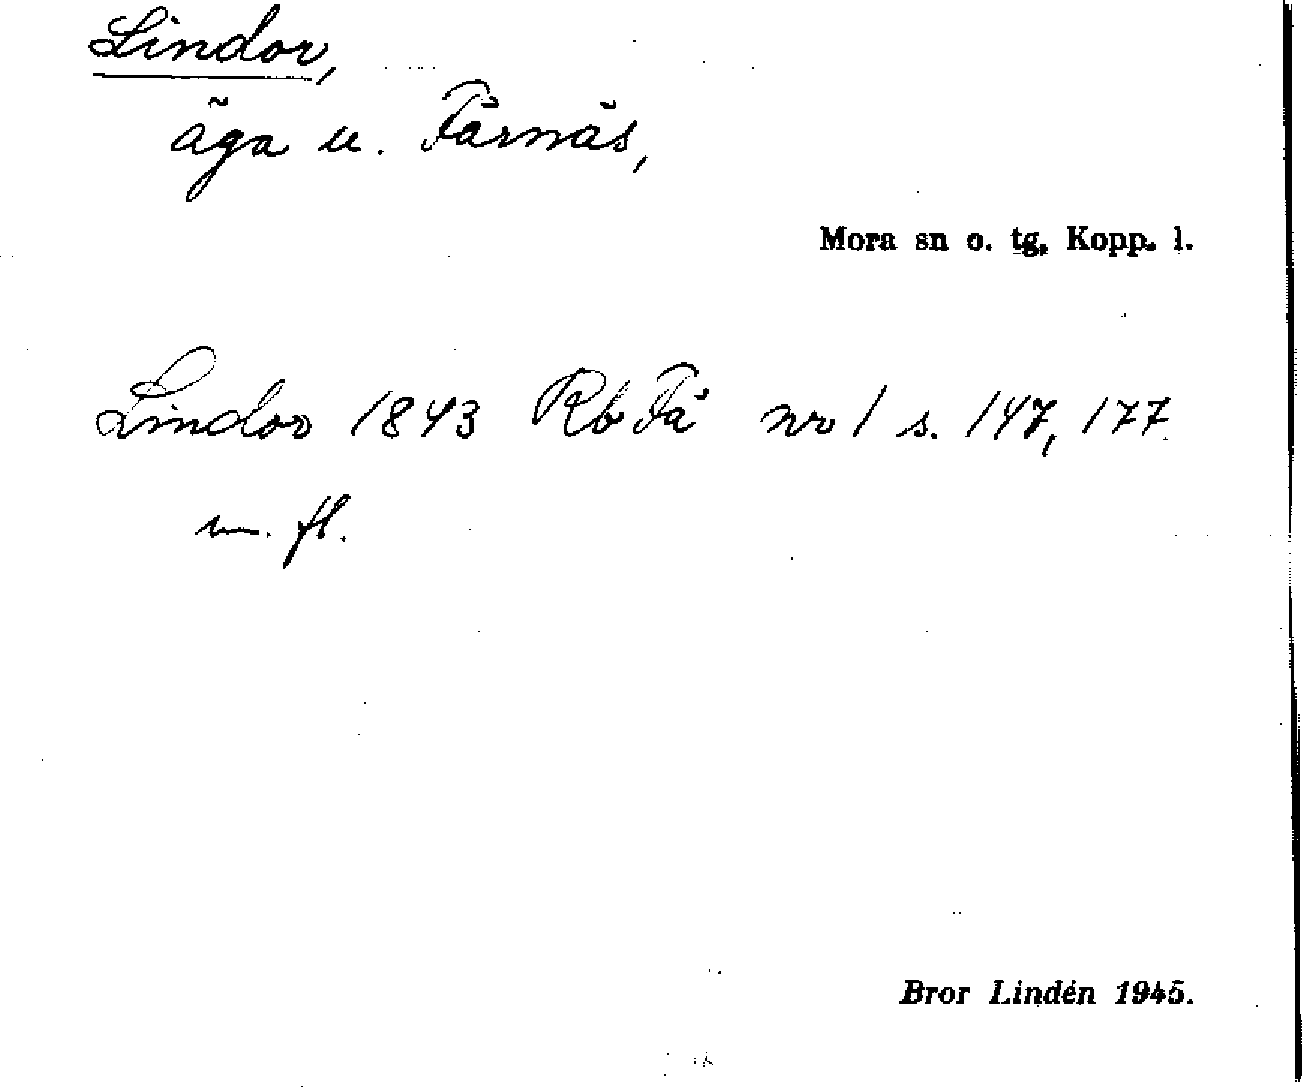 Lindor,
äga u. Färnäs,
Mora sn o. tg, Kopp. l.
Lindor 1843 Rb Fä nr 1 s. 147, 177
m. fl.
Bror Lindén 1945.